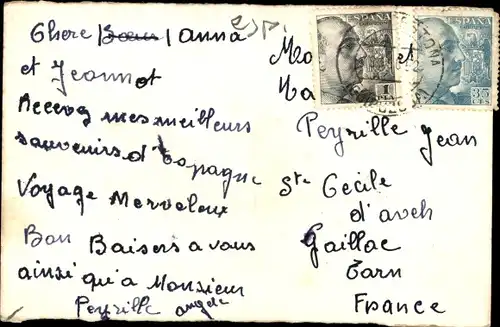 Chere Anna
et Jeannot
Recevez mes meilleurs
souvenirs d'Espagne
Voyage Merveleux
Bon Baisers a vous
ainsi qu'a Monsieur
Peyrille
Esp.
ESPAÑA
1
PTA
ESPAÑA
35
CTS
Peyrille Jean
Ste Cecile
d'aveh
Gaillac
Tarn
France